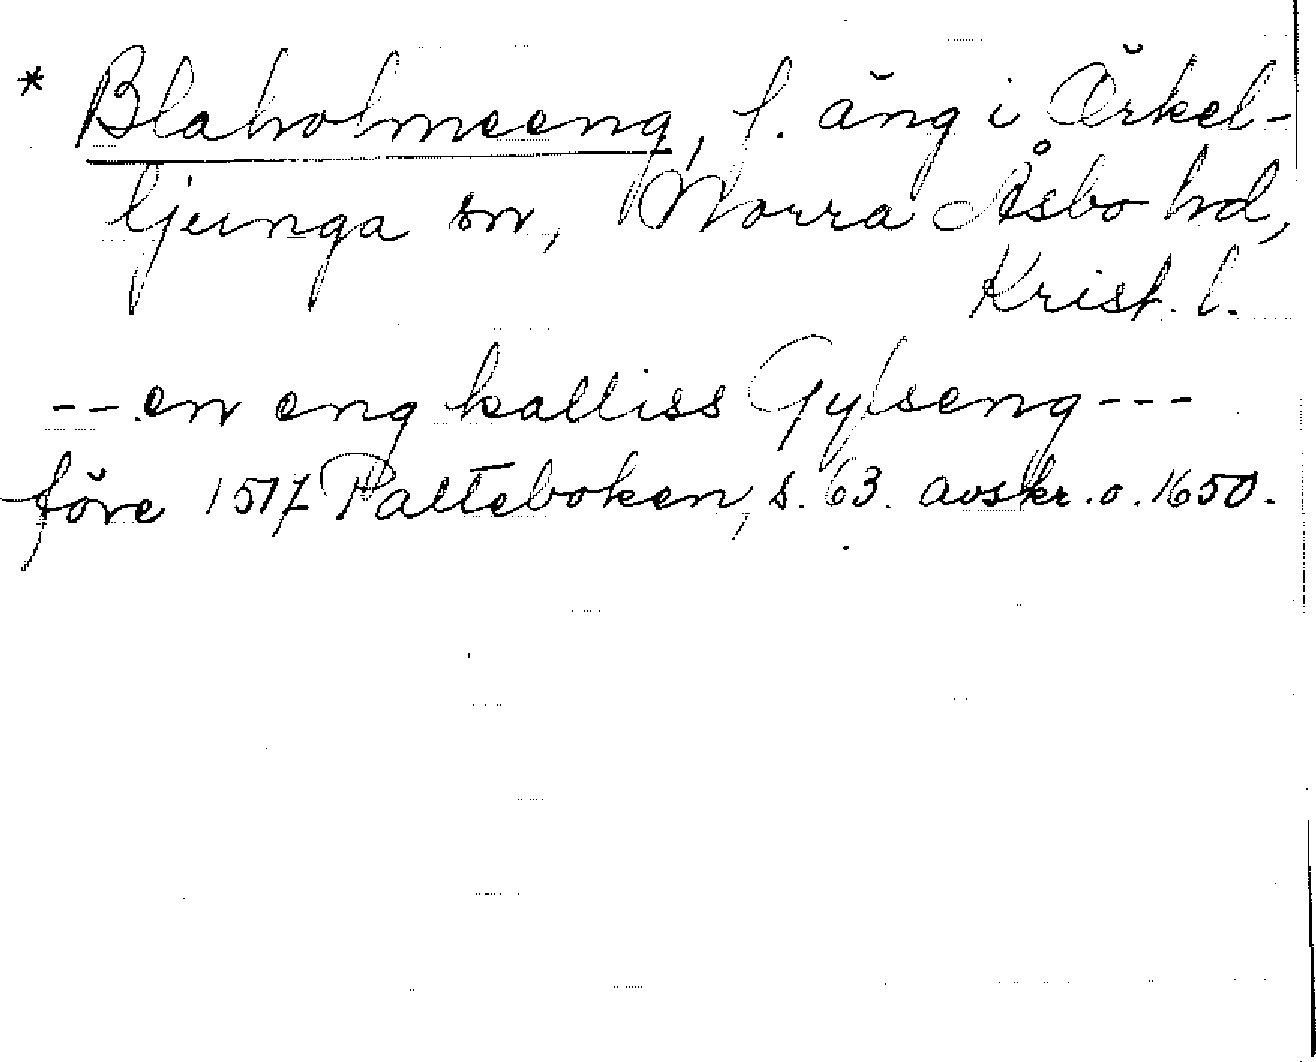 * Blaholmeeng, f. äng i Örkel-
ljunga sn, Norra Åsbo hd,
Krist. l.
-- en eng kalliss Gylseng ---
före 1517 Palteboken, s. 63. avskr. o. 1650.